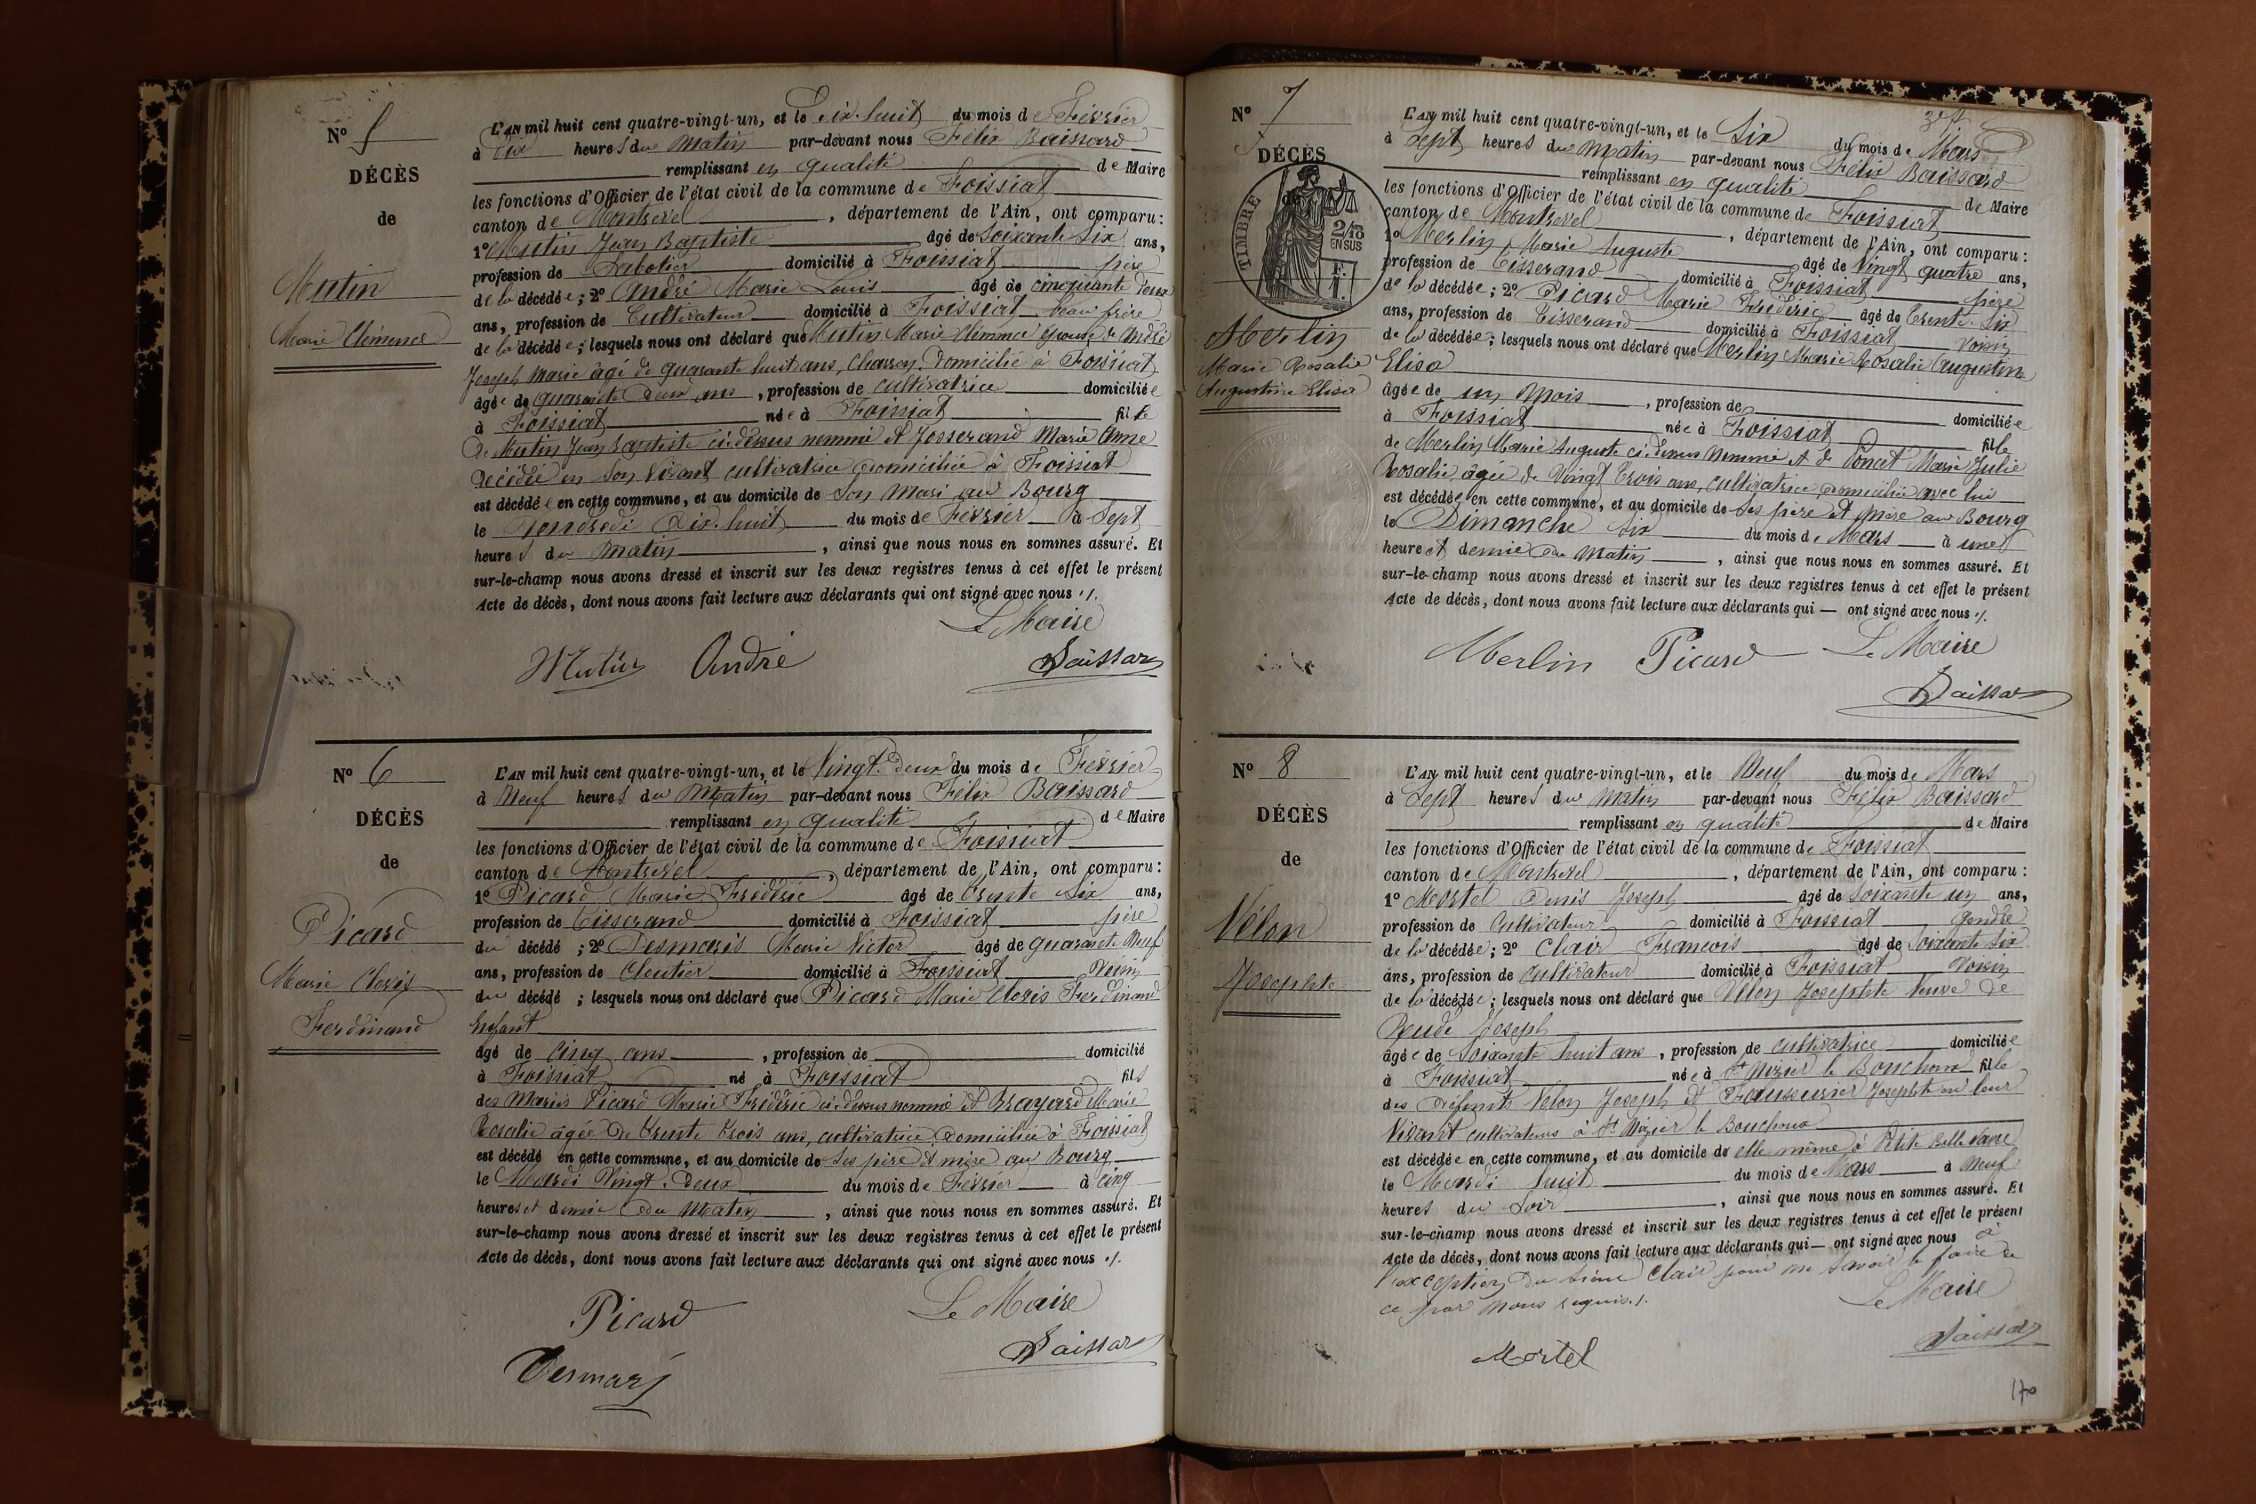 N° 5
DÉCÈS
de
Mutin
Marie Clémence
L'AN mil huit cent quatre-vingt-un, et le dix-huit du mois de Février
à dix heures du Matin par-devant nous Félix Baissard
remplissant en qualité de Maire
les fonctions d'Officier de l'état civil de la commune de Foissiat
canton de Montrevel, département de l'Ain, ont comparu:
1° Mutin Jean Baptiste âgé de Soixante Six ans,
profession de Sabotier domicilié à Foissiat père
de la décédée; 2° André Marie Louis âgé de cinquante deux
ans, profession de Cultivateur domicilié à Foissiat beau frère
de la décédée; lesquels nous ont déclaré que Mutin Marie Clémence épouse de André
Joseph Marie âgé de quarante huit ans, Charron, Domicilié à Foissiat
âgée de quarante deux ans, profession de cultivatrice domiciliée
à Foissiat née à Foissiat fille
De Mutin Jean Baptiste ci-dessus nommé et Josserand Marie Anne
Décédée en son Vivant cultivatrice domiciliée à Foissiat
est décédée en cette commune, et au domicile de Son Mari au Bourg
le Vendredi dix-huit du mois de Février à Sept
heures du Matin, ainsi que nous nous en sommes assuré. Et
sur-le-champ nous avons dressé et inscrit sur les deux registres tenus à cet effet le présent
Acte de décès, dont nous avons fait lecture aux déclarants qui ont signé avec nous ./.
Le Maire
Mutin André Baissard
N° 6
DÉCÈS
de
Picard
Marie Cloris
Ferdinand
L'AN mil huit cent quatre-vingt-un, et le Vingt-deux du mois de Février
à Neuf heures du Matin par-devant nous Félix Baissard
remplissant en qualité de Maire
les fonctions d'Officier de l'état civil de la commune de Foissiat
canton de Montrevel, département de l'Ain, ont comparu:
1° Picard Marie Frédéric âgé de trente Six ans,
profession de Tisserand domicilié à Foissiat père
du décédé; 2° Desmaris Marie Victor âgé de quarante Neuf
ans, profession de Cloutier domicilié à Foissiat Voisin
du décédé; lesquels nous ont déclaré que Picard Marie Cloris Ferdinand
Enfant
âgé de Cinq ans, profession de domicilié
à Foissiat né à Foissiat fils
des Mariés Picard Marie Frédéric ci-dessus nommé et Brayard Marie
Rosalie âgée De trente trois ans, cultivatrice, domiciliée à Foissiat
est décédé en cette commune, et au domicile de Ses père et mère au Bourg
le Mardi Vingt-Deux du mois de Février à cinq
heures et demie du Matin, ainsi que nous nous en sommes assuré. Et
sur-le-champ nous avons dressé et inscrit sur les deux registres tenus à cet effet le présent
Acte de décès, dont nous avons fait lecture aux déclarants qui ont signé avec nous ./.
Picard Le Maire
Desmaris Baissard
N° 7
DÉCÈS
de
TIMBRE
2/10
EN SUS
Merlin
Marie Rosalie
Augustine Elisa
L'AN mil huit cent quatre-vingt-un, et le Six du mois de Mars
à Sept heures du Matin par-devant nous Félix Baissard
remplissant en qualité de Maire
les fonctions d'Officier de l'état civil de la commune de Foissiat
canton de Montrevel, département de l'Ain, ont comparu:
1° Merlin Marie Auguste âgé de Vingt quatre ans,
profession de Tisserand domicilié à Foissiat père
de la décédée; 2° Picard Marie Frédéric âgé de trente-Six
ans, profession de Tisserand domicilié à Foissiat voisin
de la décédée; lesquels nous ont déclaré que Merlin Marie Rosalie Augustine
Elisa
âgée de un Mois, profession de domiciliée
à Foissiat née à Foissiat fille
de Merlin Marie Auguste ci-dessus Nommé et de Poncet Marie Julie
Rosalie, âgée de Vingt trois ans, cultivatrice, domiciliée avec lui
est décédée en cette commune, et au domicile de Ses père et Mère au Bourg
le Dimanche Six du mois de Mars à une
heure et demie du Matin, ainsi que nous nous en sommes assuré. Et
sur-le-champ nous avons dressé et inscrit sur les deux registres tenus à cet effet le présent
Acte de décès, dont nous avons fait lecture aux déclarants qui — ont signé avec nous ./.
Merlin Picard Le Maire
Baissard
N° 8
DÉCÈS
de
Vélon
Josephte
L'AN mil huit cent quatre-vingt-un, et le Neuf du mois de Mars
à Sept heures du Matin par-devant nous Félix Baissard
remplissant en qualité de Maire
les fonctions d'Officier de l'état civil de la commune de Foissiat
canton de Montrevel, département de l'Ain, ont comparu:
1° Mortel Denis Joseph âgé de Soixante un ans,
profession de Cultivateur domicilié à Foissiat Gendre
de la décédée; 2° Clair François âgé de Soixante Six
ans, profession de Cultivateur domicilié à Foissiat Voisin
de la décédée; lesquels nous ont déclaré que Vélon Josephte Veuve de
Joseph
âgée de Soixante huit ans, profession de cultivatrice domiciliée
à Foissiat née à St Nizier le Bouchoux fille
des défunts Vélon Joseph et Josephte en leur
Vivant cultivateurs à St Nizier le Bouchoux
est décédée en cette commune, et au domicile de elle même à Petite Bellevavre
le Mardi huit du mois de Mars à Neuf
heures du Soir, ainsi que nous nous en sommes assuré. Et
sur-le-champ nous avons dressé et inscrit sur les deux registres tenus à cet effet le présent
Acte de décès, dont nous avons fait lecture aux déclarants qui — ont signé avec nous à
l'exception du Sieur Clair pour ne Savoir le faire de
ce par Nous requis ./.
Le Maire
Mortel Baissard
170